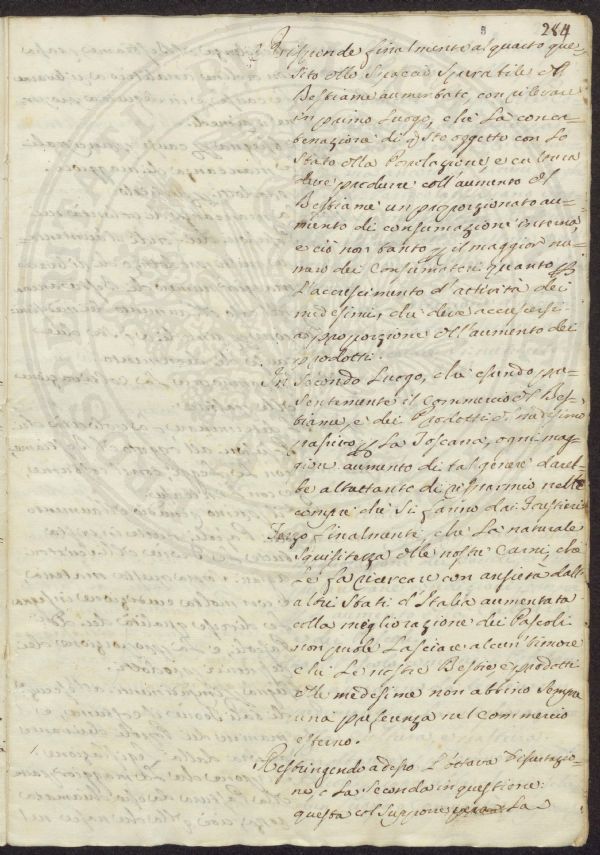 284
Risponde finalmente al quarto que=
sito dello Spaccio Sperabile del
Bestiame aumentato, con rilevare
in primo Luogo, che La conca=
tenazione di q.sto oggetto con Lo
Stato della Popolazione, e cultura
deve produrre coll'aumento del
Bestiame un proporzionato au=
mento di consumazione interna,
e ciò non tanto p il maggior nu=
mero dei Consumatori quanto p
L'accrescimento d'attività dei
medesimi, che deve accrescersi
a proporzione dell'aumento dei
prodotti.
In Secondo Luogo, che essendo pre=
sentemente il commercio del Bes=
tiame, e dei Prodotti d. medesimo
passivo p La Toscana, ogni mag=
gior aumento di tal genere dareb=
be altrettanto di risparmio nelle
compre che si fanno dai Forestieri
Terzo finalmente, che La naturale
Squisitezza delle nostre Carni, che
Le fa ricercare con ansietà dalli
altri Stati d'Italia aumentata
colla migliorazione dei Pascoli
non puole Lasciare alcun timore
che Le nostre Bestie, e prodotti
delle medesime non abbino Sempre
una preferenza nel commercio
esterno.
Restringendo adesso L'ottava Disertazio=
ne, e La Seconda in questione:
questa col Suppone La